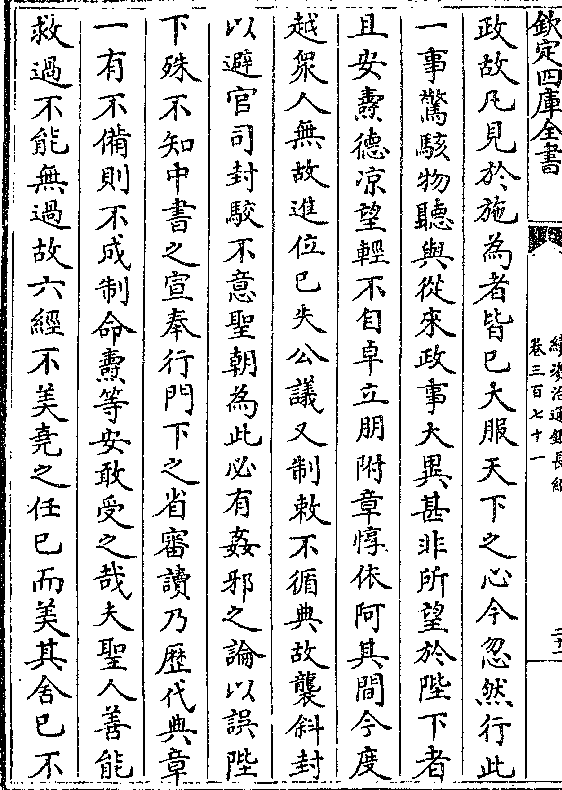 欽定四庫全書
續資治通鑑長編
卷三百七十一
政故凡見於施為者皆已大服天下之心今忽然行此
一事驚駭物聽與從來政事大異甚非所望於陛下者
且安燾德凉望輕不自卓立朋附章惇依阿其間今度
越衆人無故進位已失公議又制敕不循典故襲斜封
以避官司封駁不意聖朝為此必有姦邪之論以誤陛
下殊不知中書之宣奉行門下之省審讀乃歴代典章
一有不備則不成制命燾等安敢受之哉夫聖人善能
救過不能無過故六經不美堯之任已而美其舍已不